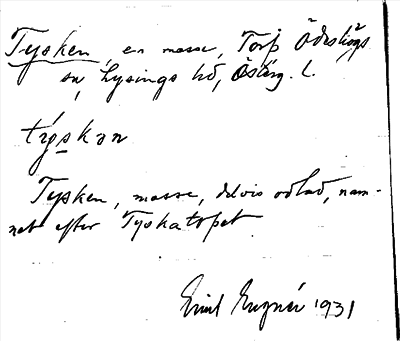 Tysken, en mosse, Torp Ödeshögs
sn, Lysings hd, Österg. l.
týskan
Tysken, mosse, delvis odlad, nam-
net efter Tyskatorpet
Emil 1931